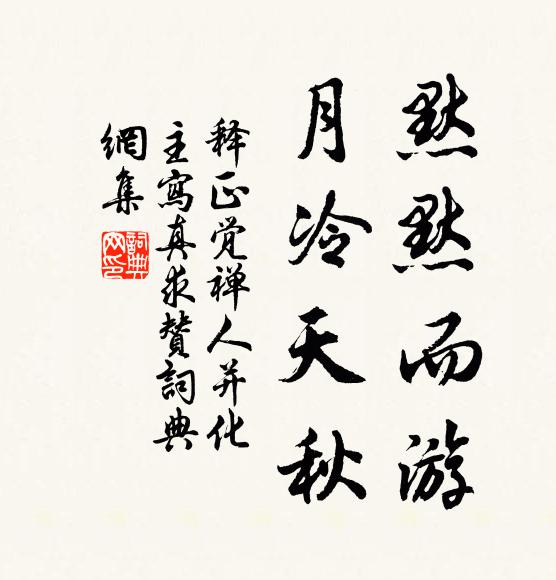 默默而游
月冷天秋
释正觉禅人并化
主寫真求贊詞典
網集
詞典
网印